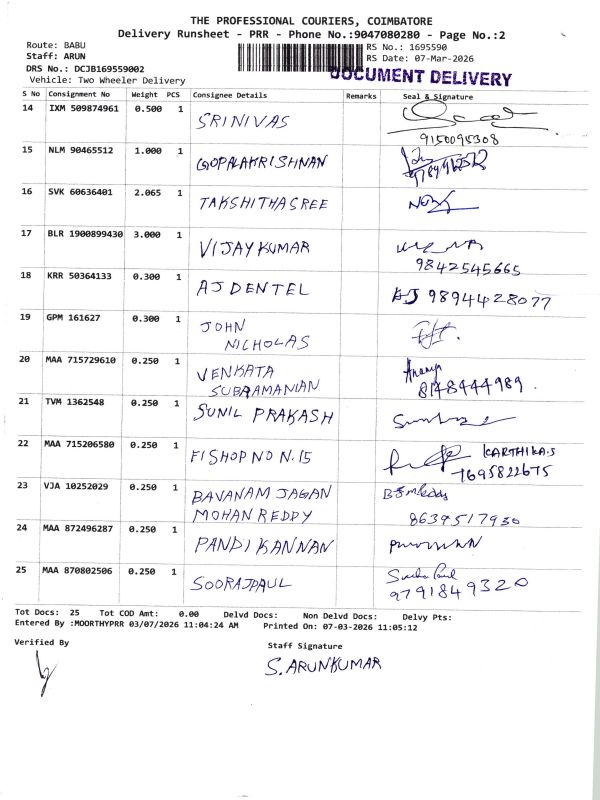 THE PROFESSIONAL COURIERS, COIMBATORE
Delivery Runsheet - PRR - Phone No.:9047080280 - Page No.:2
Route: BABU
Staff: ARUN
DRS No.: DCJB169559002
Vehicle: Two Wheeler Delivery
RS No.: 1695590
RS Date: 07-Mar-2026
DOCUMENT DELIVERY
S No Consignment No Weight PCS Consignee Details Remarks Seal & Signature
14 IXM 509874961 0.500 1 SRINIVAS
9150095308
15 NLM 90465512 1.000 1 GOPALAKRISHNAN
16 SVK 60636401 2.065 1 TAKSHITHASREE
17 BLR 1900899430 3.000 1 VIJAYKUMAR
9842545665
18 KRR 50364133 0.300 1 AJ DENTEL AJ 9894428077
19 GPM 161627 0.300 1 JOHN
NICHOLAS
20 MAA 715729610 0.250 1 VENKATA
SUBRAMANIAN
8148444989.
21 TVM 1362548 0.250 1 SUNIL PRAKASH
22 MAA 715206580 0.250 1 FISHOP NO N.15 KARTHIKA.S
7695822675
23 VJA 10252029 0.250 1 BAVANAM JAGAN
MOHAN REDDY
8639517930
24 MAA 872496287 0.250 1 PANDIKANNAN
25 MAA 870802506 0.250 1 SOORAJPAUL
9791849320
Tot Docs: 25 Tot COD Amt: 0.00 Delvd Docs: Non Delvd Docs: Delvy Pts:
Entered By :MOORTHYPRR 03/07/2026 11:04:24 AM Printed On: 07-03-2026 11:05:12
Verified By
Staff Signature
S. ARUNKUMAR